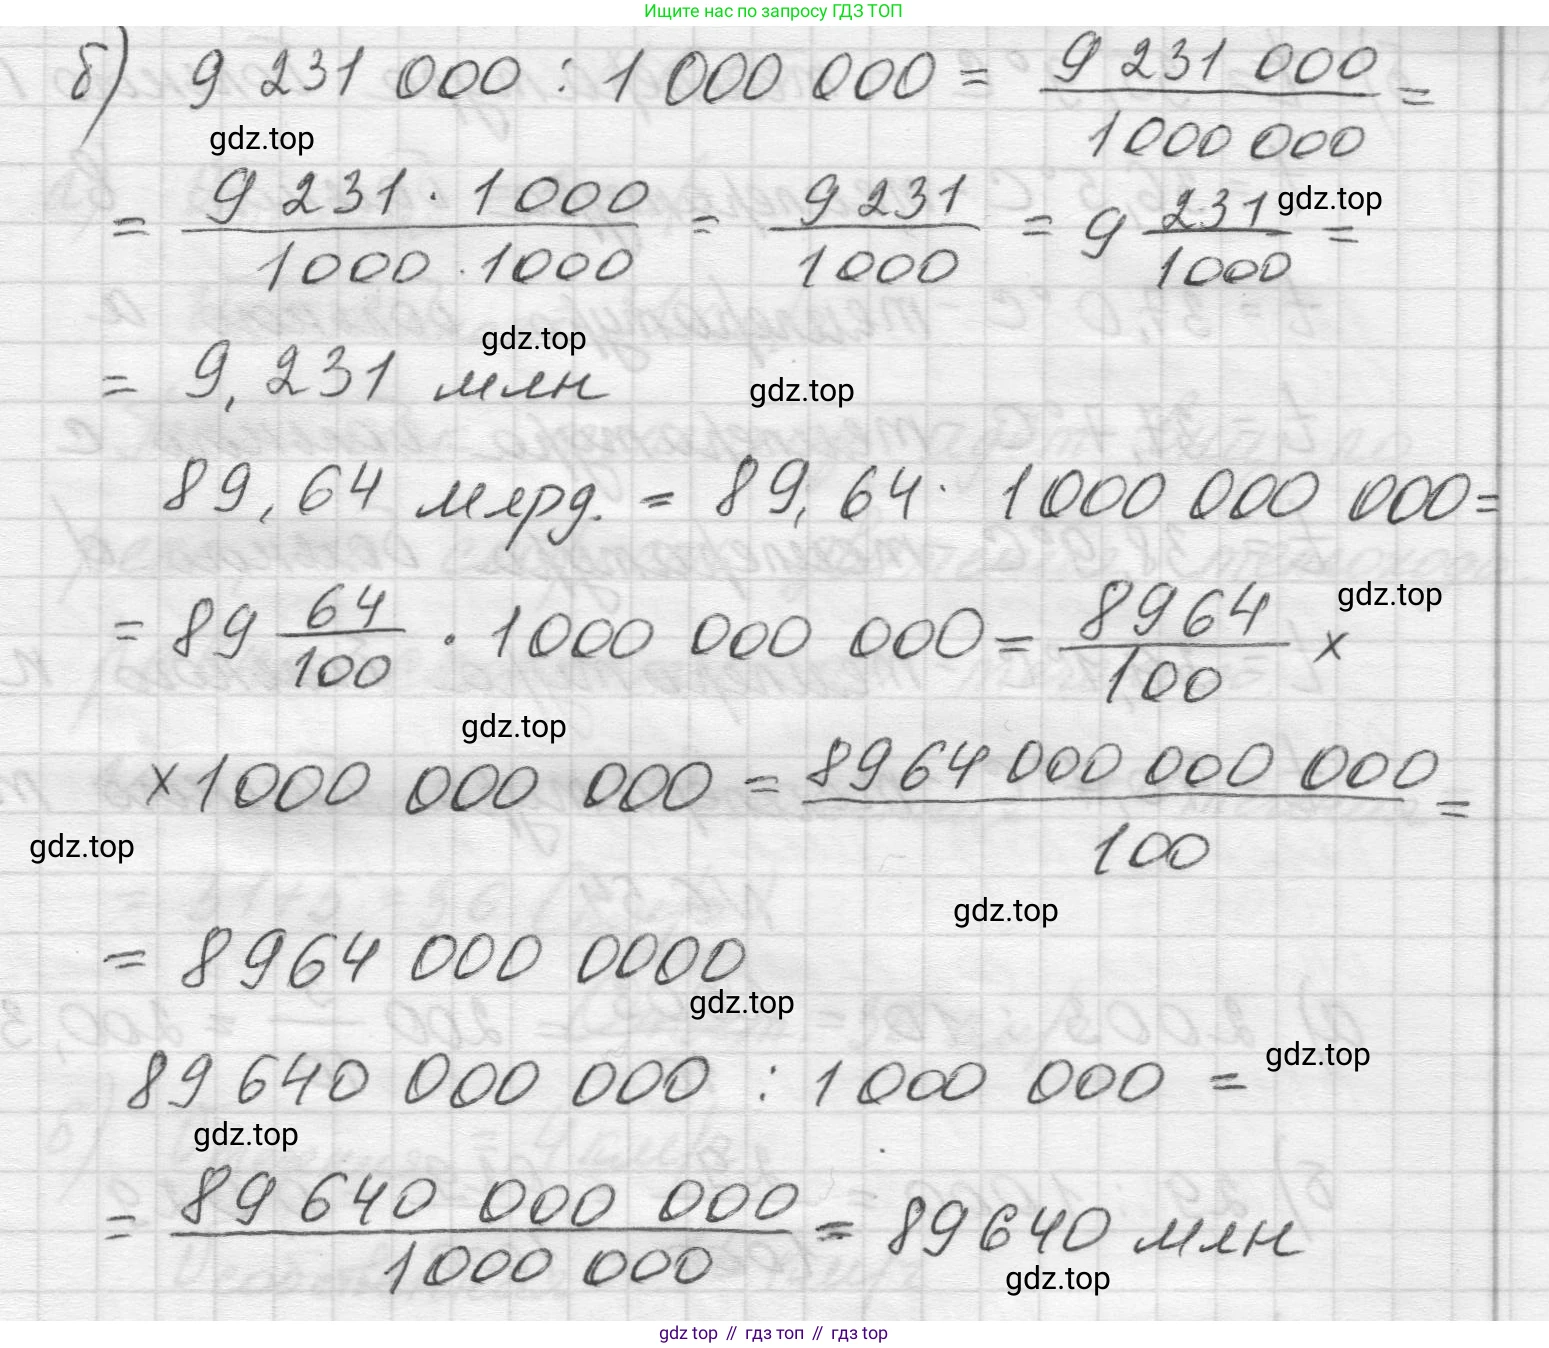 Ищите нас по запросу ГДЗ ТОП
б) 9 231 000 : 1 000 000 = 9 231 000 / 1 000 000 =
gdz.top
= 9 231 · 1 000 / 1 000 · 1 000 = 9 231 / 1 000 = 9 231/1000 =
gdz.top
gdz.top
= 9,231 млн
gdz.top
89,64 млрд. = 89,64 · 1 000 000 000 =
= 89 64/100 · 1 000 000 000 = 8964/100 ×
gdz.top
gdz.top
× 1 000 000 000 = 8964 000 000 000 / 100 =
gdz.top
gdz.top
= 8964 000 0000
gdz.top
89 640 000 000 : 1 000 000 =
gdz.top
gdz.top
= 89 640 000 000 / 1 000 000 = 89640 млн
gdz.top
gdz top // гдз топ // gdz top